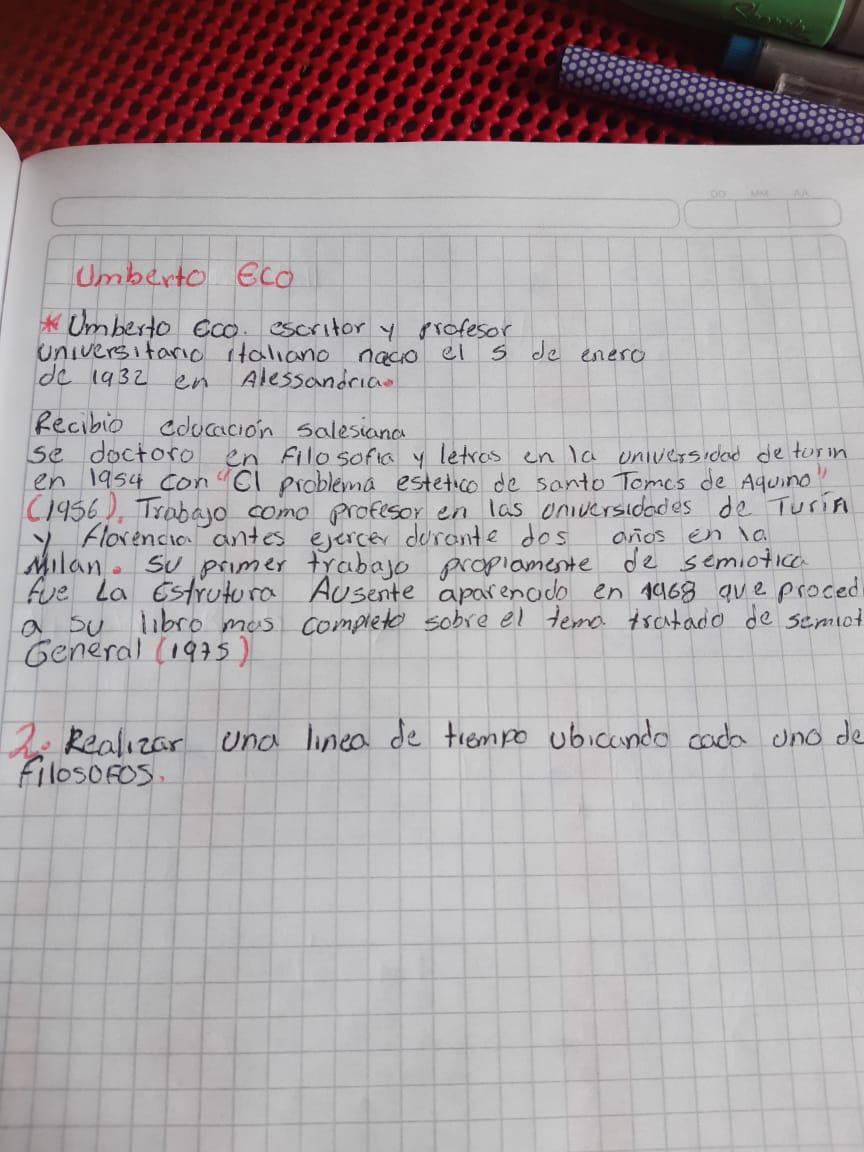 DD MM AA
Umberto Eco
* Umberto Eco. escritor y profesor
universitario italiano nacio el 5 de enero
de 1932 en Alessandria.
Recibio educación salesiana
se doctoro en Filosofia y letras en la universidad de turin
en 1954 con "El problema estetico de santo Tomas de Aquino"
(1956). Trabajo como profesor en las universidades de Turin
y Florencia antes ejercer durante dos años en la
Milan. su primer trabajo propiamente de semiotica
fue La Estrutura Ausente aparenado en 1968 que proced
a su libro mas completo sobre el tema tratado de semiot
General (1975)
2. Realizar una linea de tiempo ubicando cada uno de
Filosofos.